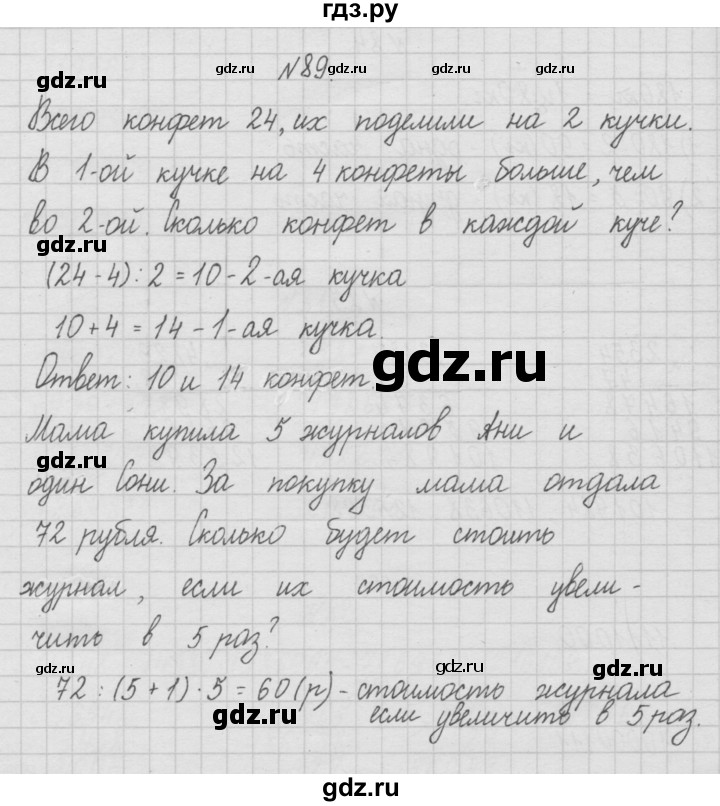 гдз.ру
№89.
gdz.ru gdz.ru gdz.ru gdz.ru
Всего конфет 24, их поделили на 2 кучки.
В 1-ой кучке на 4 конфеты больше, чем
gdz.ru gdz.ru
во 2-ой. Сколько конфет в каждой куче?
(24-4):2=10-2-ая кучка
10+4=14-1-ая кучка.
gdz.ru gdz.ru
Ответ: 10 и 14 конфет.
Мама купила 5 журналов Ани и
gdz.ru gdz.ru
один Сони. За покупку мама отдала
72 рубля. Сколько будет стоить
gdz.ru gdz.ru
журнал, если их стоимость увели-
чить в 5 раз?
gdz.ru gdz.ru gdz.ru
72:(5+1)·5=60(р)-стоимость журнала
gdz.ru gdz.ru
если увеличить в 5 раз.
gdz.ru